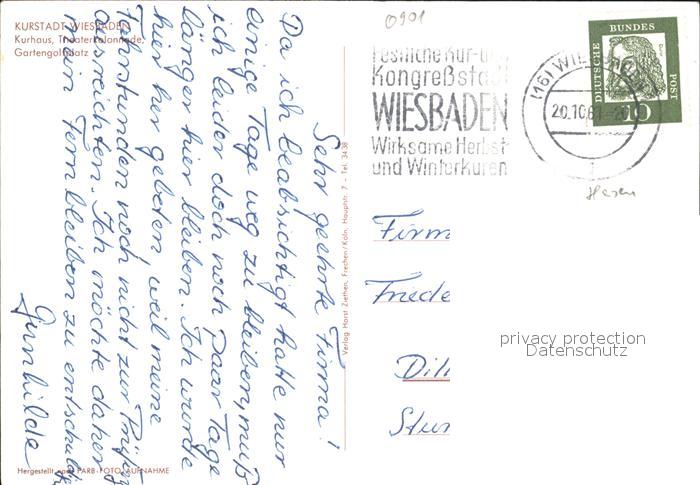 KURSTADT WIESBADEN
Kurhaus, Theaterkolonnade,
Gartengoldplatz
0901
Festliche Kur- und
Kongreßstadt
WIESBADEN
Wirksame Herbst-
und Winterkuren
(16) WIESBADEN
20.10.61-20
DEUTSCHE BUNDES POST
10
Sehr geehrte Firma!
Da ich beabsichtigt hatte nur
einige Tage weg zu bleiben, muß
ich leider doch noch paar Tage
länger hier bleiben. Ich wurde
hier her gebeten, weil meine
Fahrstunden noch nicht zur Prüfung
ausreichten. Ich möchte daher
mein Fernbleiben zu entschuldi
Gunhilde
Verlag Horst Ziethen, Frechen/Köln, Hauptstr. 7 - Tel. 3438
Firm
Friede
Dill
Stur
privacy protection
Datenschutz
Hergestellt nach FARB-FOTO-AUFNAHME